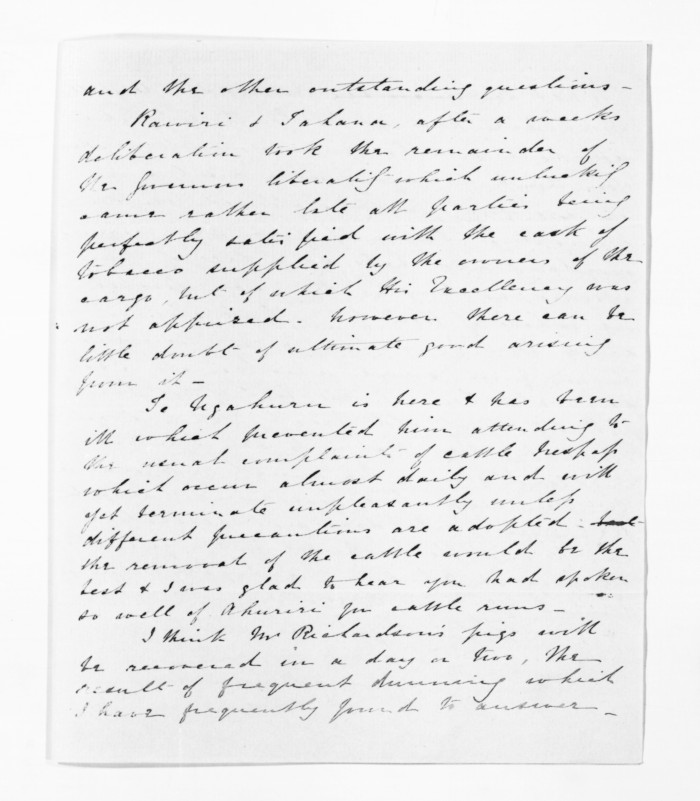 and the other outstanding questions -
Rawiri & Tahana, after a weeks
deliberation took the remainder of
the Governors liberality which unluckily
came rather late all parties being
perfectly satisfied with the cask of
tobacco supplied by the owners of the
cargo, but of which His Excellency was
not apprized. however there can be
little doubt of ultimate good arising
from it -
Te Ngahuru is here & has been
ill which prevented him attending to
the usual complaints of cattle trespass
which occur almost daily and will
yet terminate unpleasantly unless
different precautions are adopted -
the removal of the cattle would be the
best & I was glad to hear you had spoken
so well of Ahuriri for cattle runs -
I think Mr Richardson's pigs will
be recovered in a day or two, the
result of frequent dunning which
I have frequently found to answer -